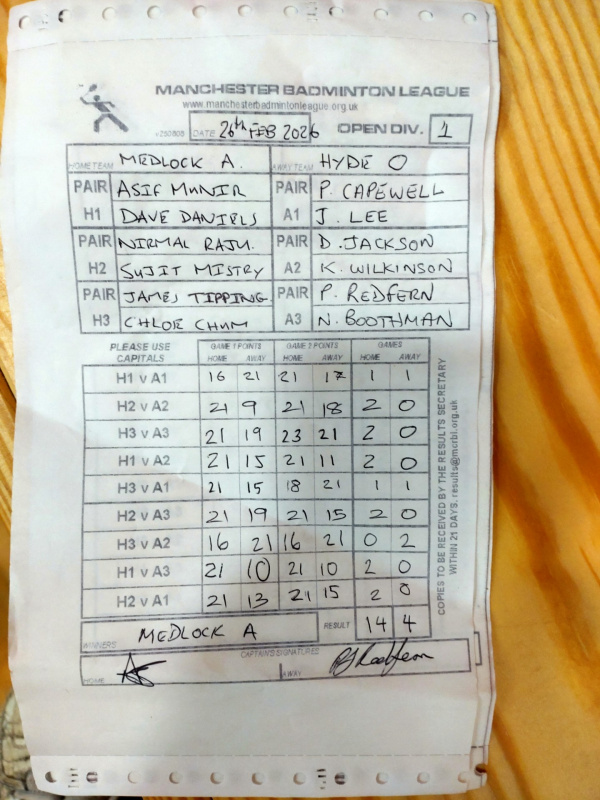 MANCHESTER BADMINTON LEAGUE
www.manchesterbadmintonleague.org.uk
v250805 DATE 26th FEB 2026 OPEN DIV. 1
HOME TEAM MEDLOCK A. AWAY TEAM HYDE O
PAIR ASIF MUNIR PAIR P. CAPEWELL
H1 DAVE DANIELS A1 J. LEE
PAIR NIRMAL RAJU. PAIR D. JACKSON
H2 SUJIT MISTRY A2 K. WILKINSON
PAIR JAMES TIPPING PAIR P. REDFERN
H3 CHLOE CHUM A3 N. BOOTHMAN
PLEASE USE CAPITALS GAME 1 POINTS GAME 2 POINTS GAMES
HOME AWAY HOME AWAY HOME AWAY
H1 v A1 16 21 21 17 1 1
H2 v A2 21 9 21 18 2 0
H3 v A3 21 19 23 21 2 0
H1 v A2 21 15 21 11 2 0
H3 v A1 21 15 18 21 1 1
H2 v A3 21 19 21 15 2 0
H3 v A2 16 21 16 21 0 2
H1 v A3 21 10 21 10 2 0
H2 v A1 21 13 21 15 2 0
WINNERS MEDLOCK A RESULT 14 4
CAPTAIN'S SIGNATURES
HOME AWAY
COPIES TO BE RECEIVED BY THE RESULTS SECRETARY
WITHIN 21 DAYS. results@mcrbl.org.uk